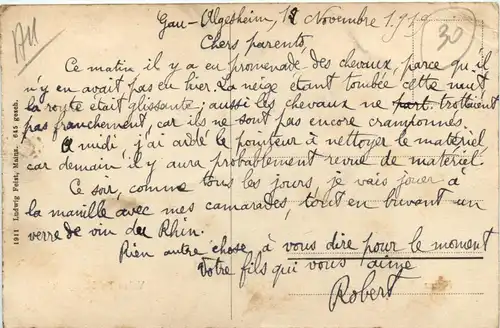 Gau-Algesheim, 18 Novembre 1919
30
Chers parents,
Ce matin il y a eu promenade des chevaux, parce qu'il
n'y en avait pas eu hier. La neige étant tombée cette nuit
la route était glissante; aussi les chevaux ne part. trottaient
pas franchement car ils ne sont pas encore cramponnés.
A midi j'ai aidé le pointeur à nettoyer le matériel
car demain il y aura probablement revue de matériel.
Ce soir, comme tous les jours, je vais jouer à
la manille avec mes camarades, tout en buvant un
verre de vin du Rhin.
Rien autre chose à vous dire pour le moment
Votre fils qui vous aime
Robert
1911 Ludwig Feist, Mainz. 645 gesch.